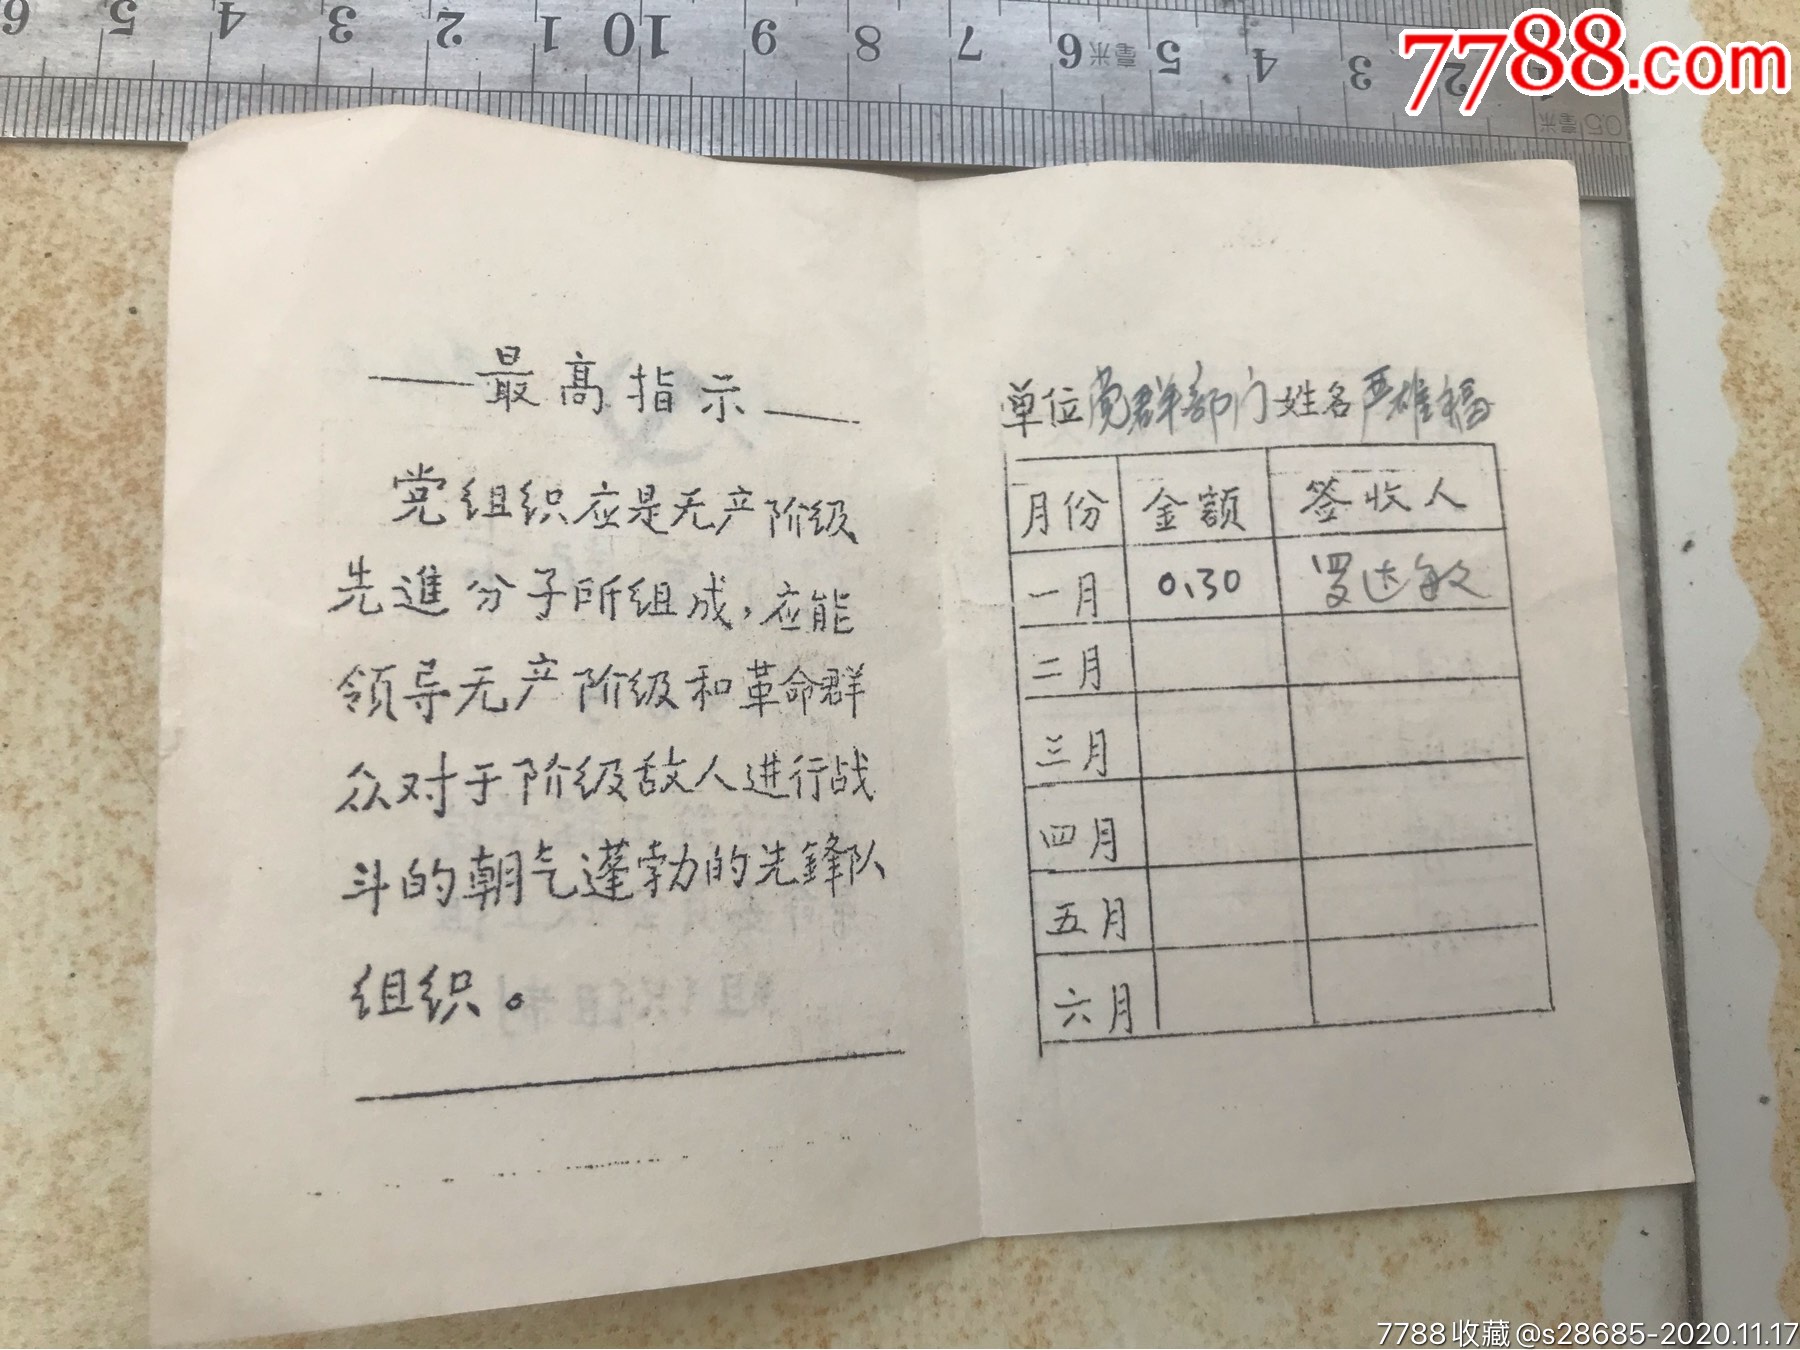 6 5 4 3 2 1 10 9 8 7 6毫米 5 4 3 2 1
0.5毫米
7788.com
最高指示
党组织应是无产阶级
先進分子所组成,应能
领导无产阶级和革命群
众对于阶级敌人进行战
斗的朝气蓬勃的先鋒队
组织。
单位党群部门姓名严雄福
月份 金额 签收人
一月 0.30 罗达敏
二月
三月
四月
五月
六月
7788收藏@s28685-2020.11.17